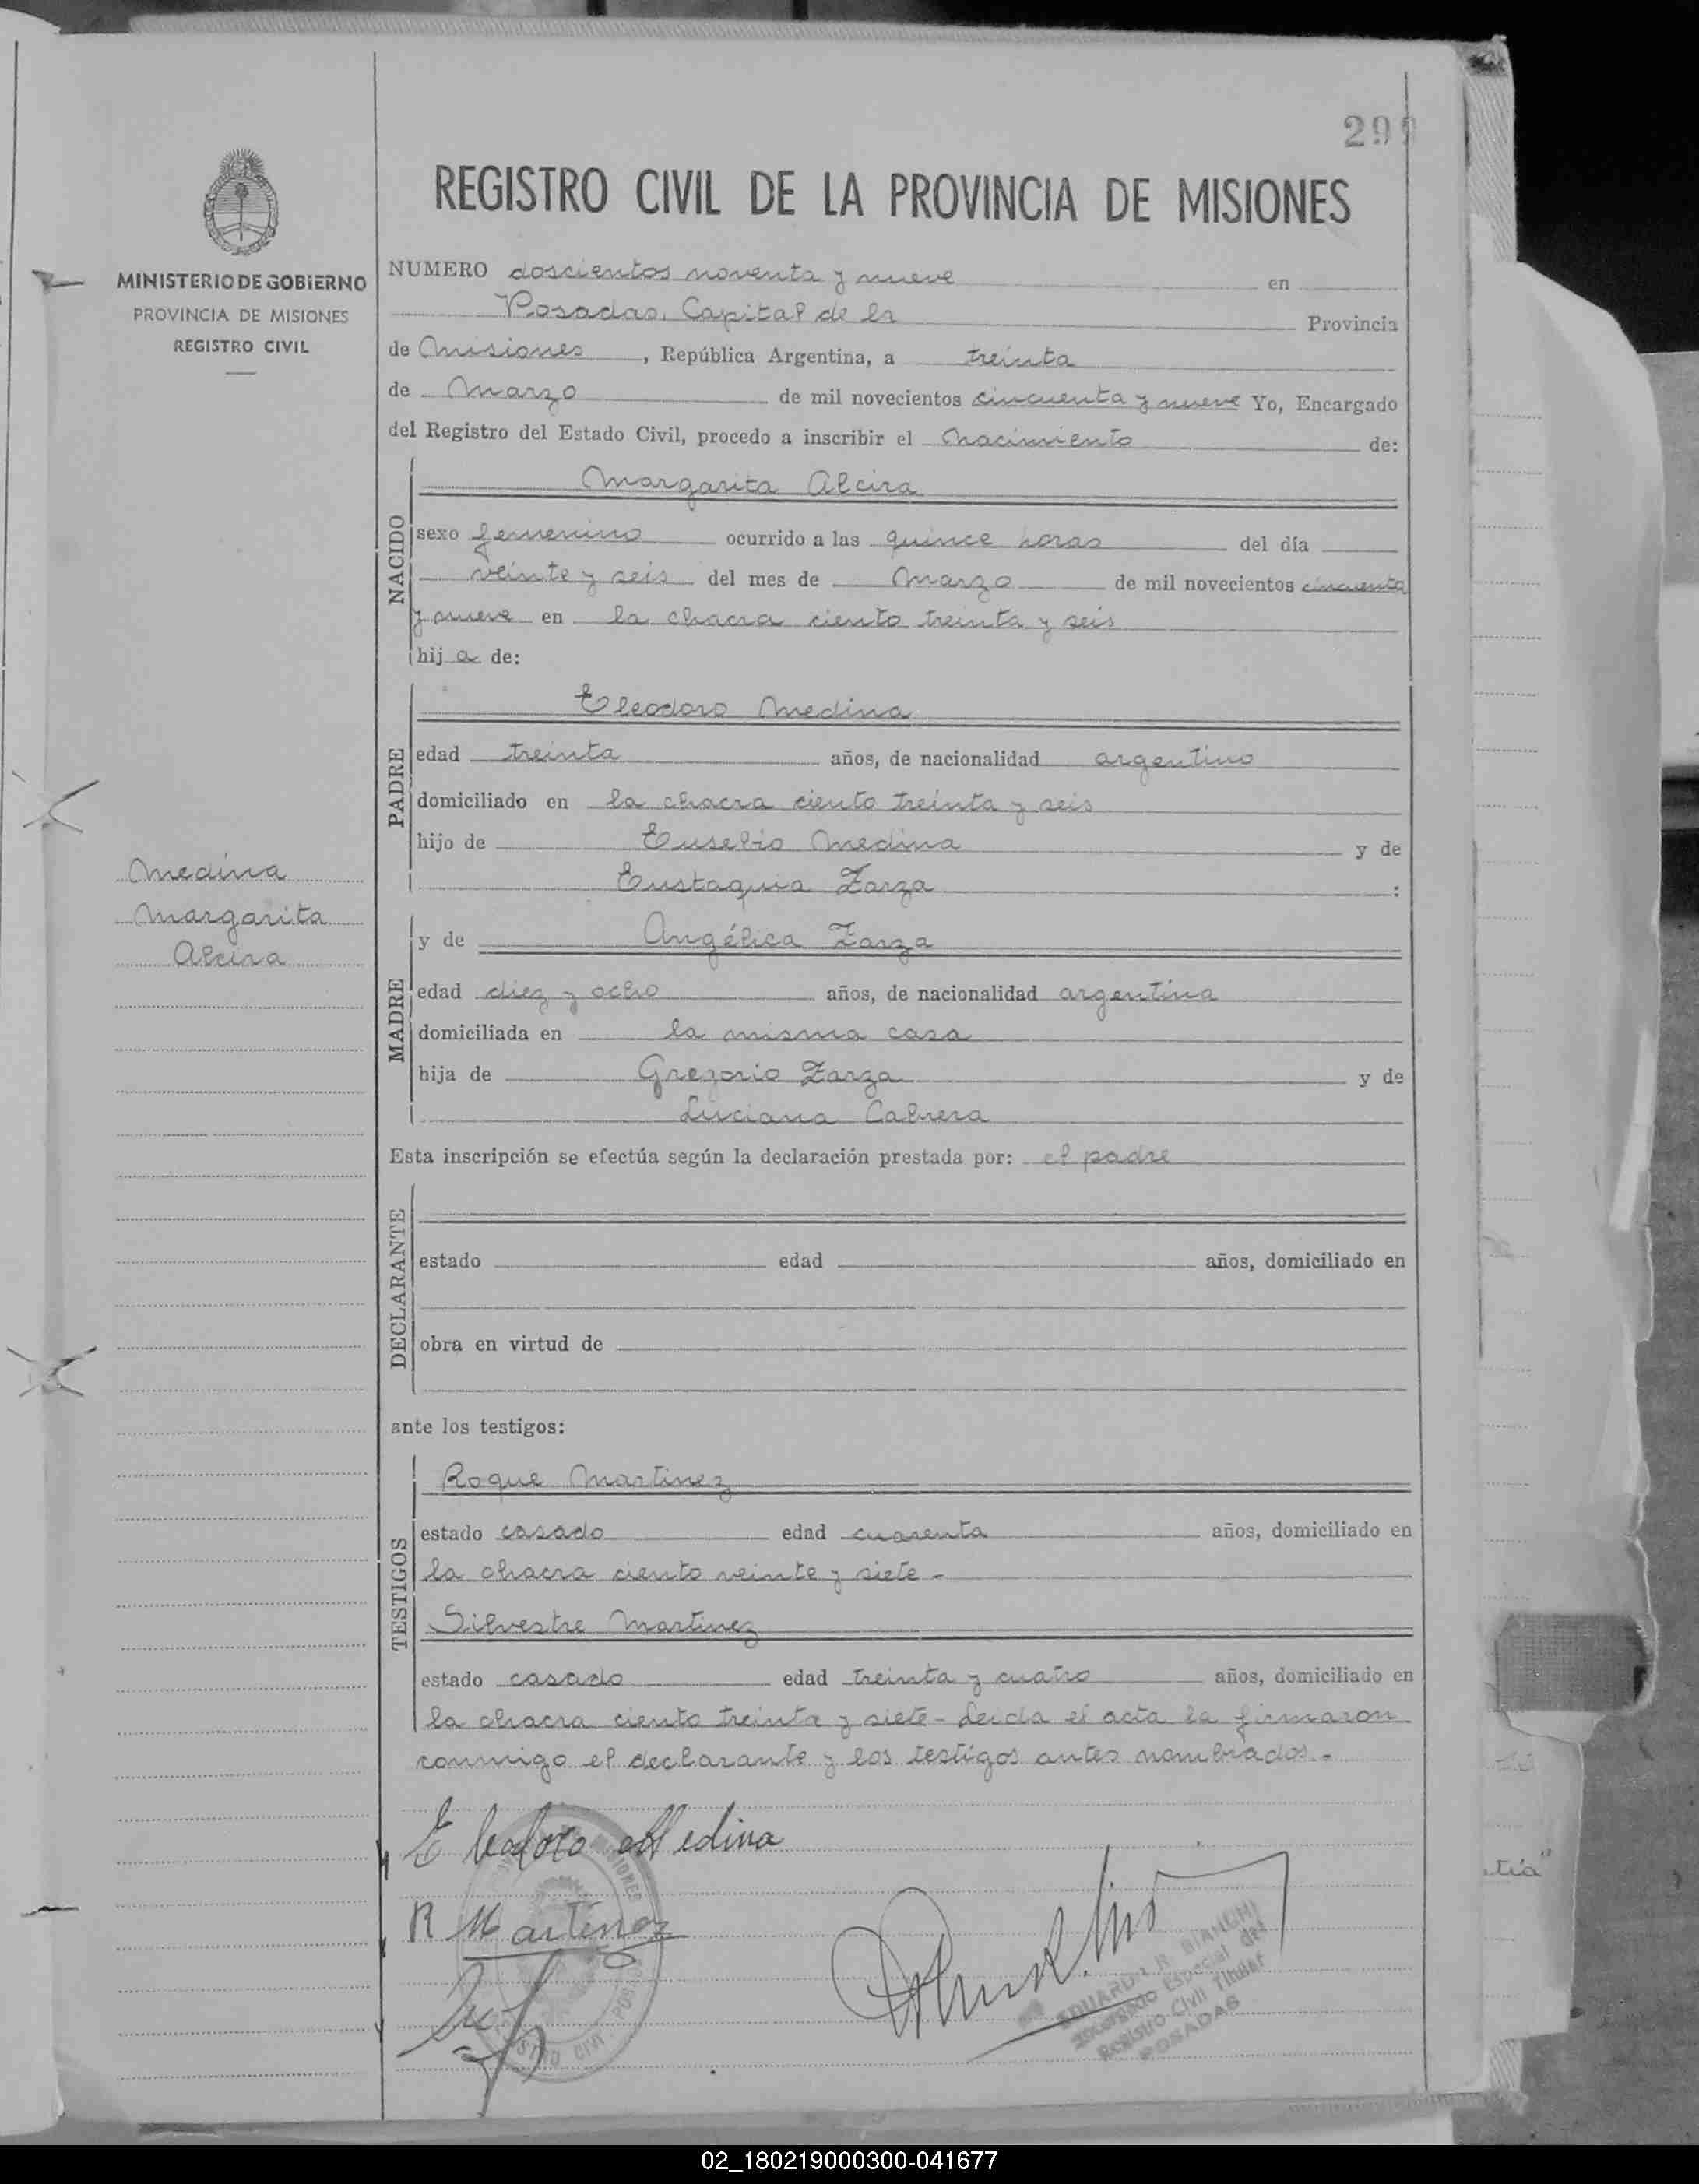 299
REGISTRO CIVIL DE LA PROVINCIA DE MISIONES
MINISTERIO DE GOBIERNO
PROVINCIA DE MISIONES
REGISTRO CIVIL
NUMERO doscientos noventa y nueve en
Posadas, Capital de la Provincia
de Misiones, República Argentina, a treinta
de Marzo de mil novecientos cincuenta y nueve Yo, Encargado
del Registro del Estado Civil, procedo a inscribir el Nacimiento de:
NACIDO
Margarita Alcira
sexo femenino ocurrido a las quince horas del día
veinte y seis del mes de Marzo de mil novecientos cincuenta
y nueve en la chacra ciento treinta y seis
hija de:
PADRE
Eleodoro Medina
edad treinta años, de nacionalidad argentino
domiciliado en la chacra ciento treinta y seis
hijo de Eusebio Medina y de
Eustaquia Zarza :
Medina
Margarita
Alcira
MADRE
y de Angélica Zarza
edad diez y ocho años, de nacionalidad argentina
domiciliada en la misma casa
hija de Gregorio Zarza y de
Luciana Cabrera
Esta inscripción se efectúa según la declaración prestada por: el padre
DECLARANTE
estado edad años, domiciliado en
obra en virtud de
ante los testigos:
TESTIGOS
Roque Martinez
estado casado edad cuarenta años, domiciliado en
la chacra ciento veinte y siete -
Silvestre Martinez
estado casado edad treinta y cuatro años, domiciliado en
la chacra ciento treinta y siete - Leida el acta la firmaron
conmigo el declarante y los testigos antes nombrados. -
Eleodoro Medina
R Martinez
EDUARDO R BIANCHI
Encargado Especial del
Registro Civil Titular
POSADAS
02_180219000300-041677